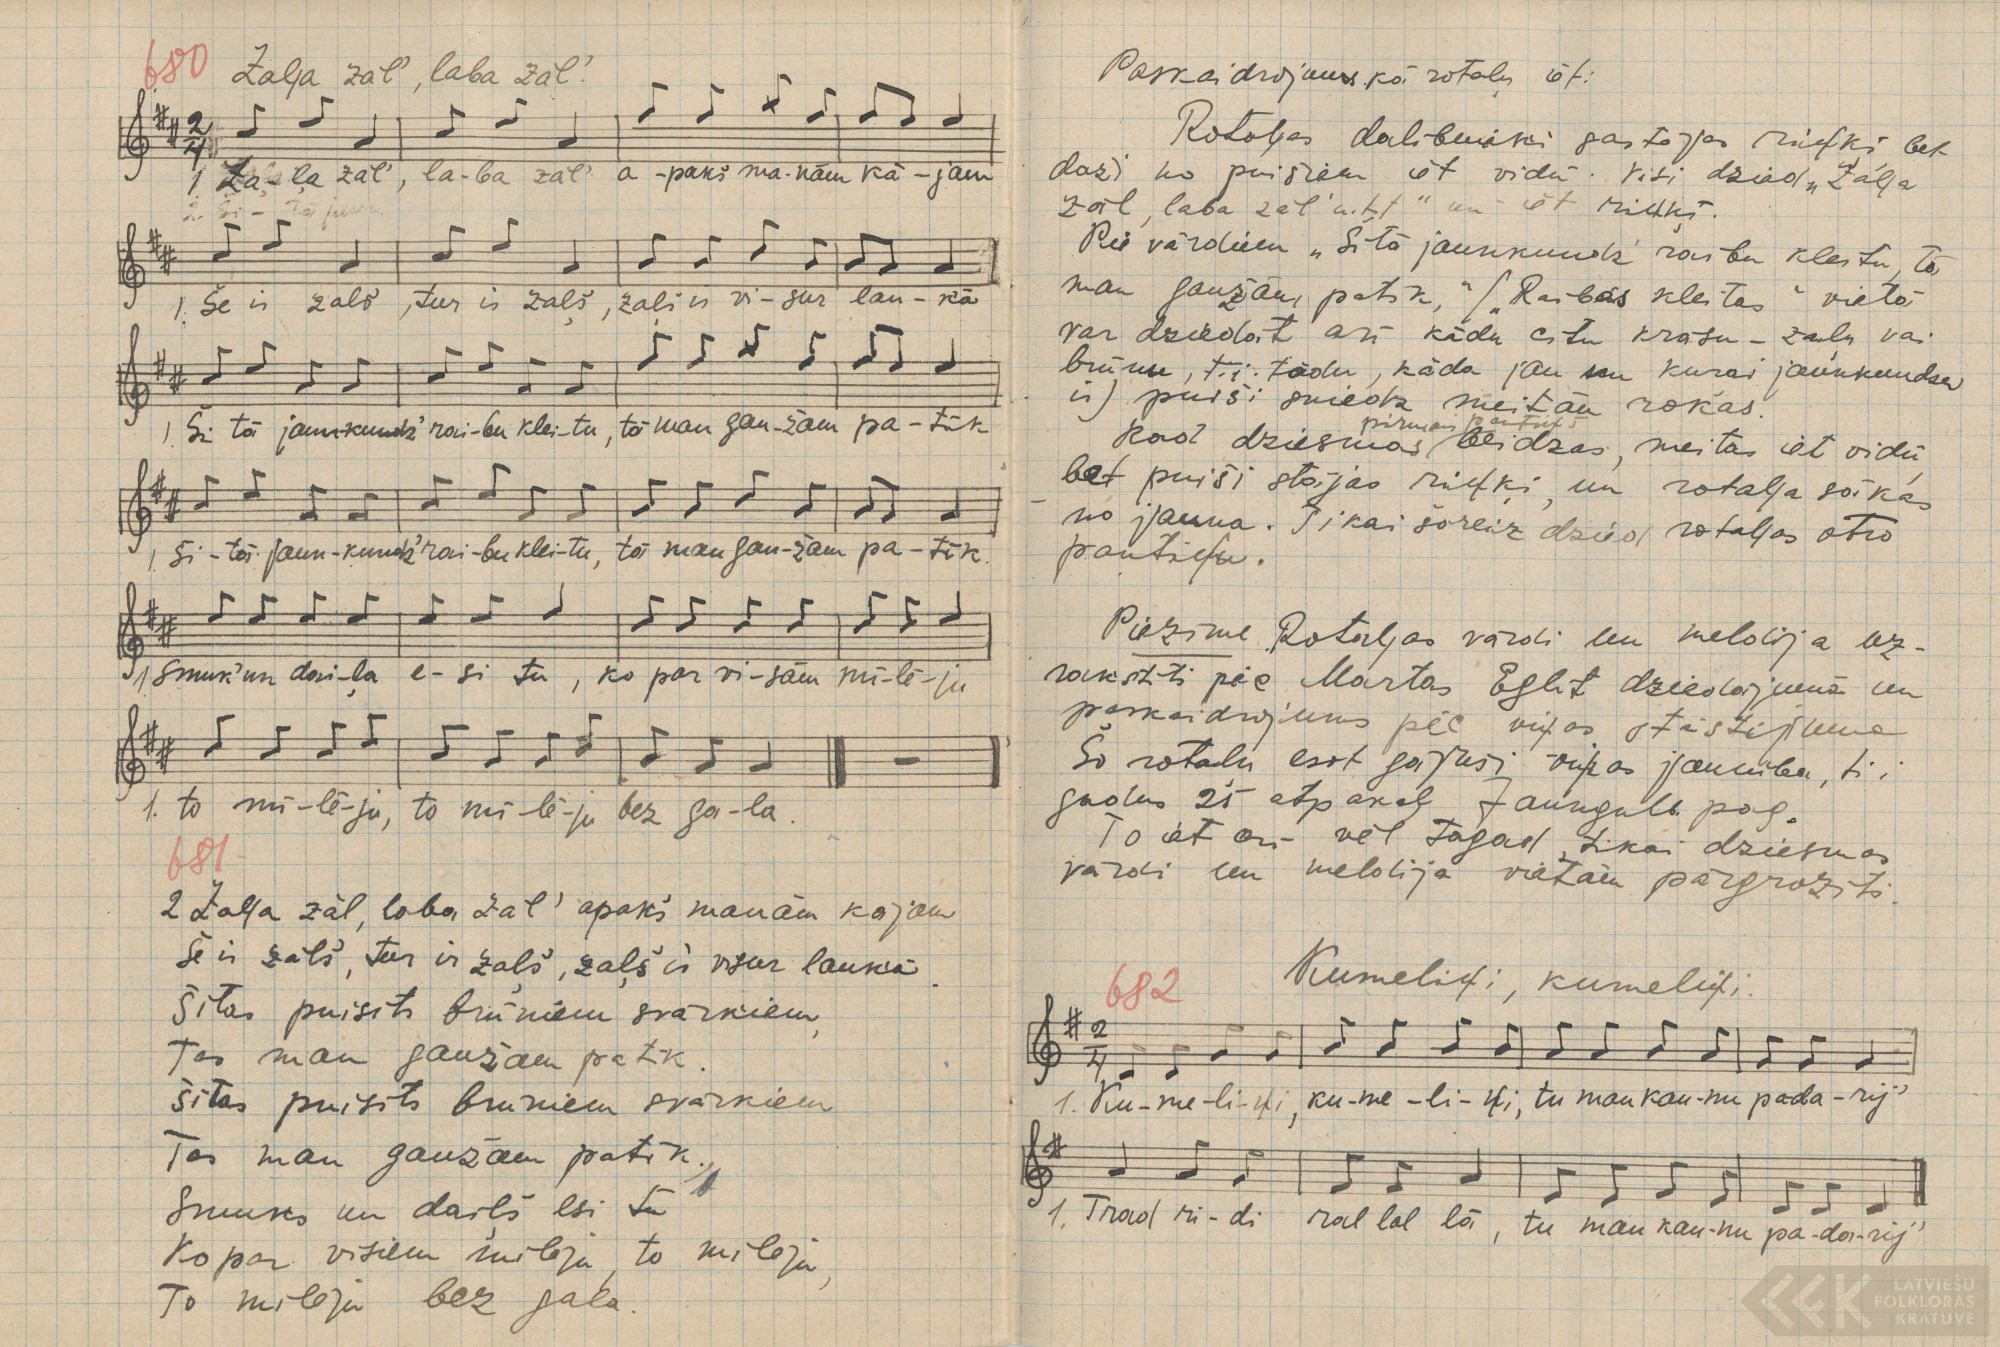 680 Žaļa zāl', laba zāl'.
2/4
1. Ža-ļa zāl', la-ba zāl' a-pakš ma-nām kā-jām
2. Ši-
1. Še ir zaļš, tur ir zaļš, zaļš ir vi-sur lau-kā
1. Ši tā jaunkundz' rai-bu klei-tu, tā man gau-žām pa-tīk
1. Ši-tā jaun-kundz' rai-bu klei-tu, tā man gau-žām pa-tīk.
1. Smuk' un dai-ļa e-si tu, ko par vi-sām mī-lē-ju
1. to mī-lē-ju, to mī-lē-ju bez ga-la.
681
2 Žaļa zāl, laba zāl' apakš manām kajam
Še ir zaļš, tur ir zaļš, zaļš ir visur laukā.
Šitas puisits brūniem svārkiem,
Tas man gaužam patīk.
Šitas puisits brūniem svārkiem
Tas man gaužām patīk.,
Smuks un daiļš esi tu
Ko par visiem mīleju, to mīleju,
To mīleju bez gala.
Paskaidrojums kā rotaļu iet:
Rotaļas dalibnieki sastājas riņķi bet
daži no puišiem iet vidū. Visi dzied „Žaļa
zāl, laba zāl' u.t.t" un iet riņķī.
Pie vārdiem „Šitā jaunkundz' raibu kleitu, tā
man gaužām patīk," /„Raibās kleitas" vietā
var dziedāt arī kādu citu krāsu - zaļu vai
brūnu, t.i. tādu, kāda jau kurai jaunkundzei
ir) puiši sniedz meitām rokas.
pirmais pantiņš
Kad dziesmas beidzas, meitas iet vidū,
bet puiši stājas riņķi, un rotaļa sākas
no jauna. Tikai šoreiz dzied rotaļas otro
pantiņu.
Piezīme. Rotaļas vārdi un melodija uz-
rakstīti pēc Martas Eglīt dziedājuma un
paskaidrojums pēc viņas stāstījuma
Šo rotaļu esot gājusi viņas jaunība, t.i.
gadus 25 atpakaļ Jaungulb. pag.
To iet arī vēl tagad, tikai dziesmas
vārdi un melodija vietām pārgrozīti.
682 Kumeliņi, kumeliņi.
2/4
1. Ku-me-li-ņi, ku-me-li-ņi, tu man kau-nu pada-rij'
1. Trad ri-di ral lal lā, tu man kau-nu pa-da-rij'
LATVIEŠU
FOLKLORAS
KRĀTUVE